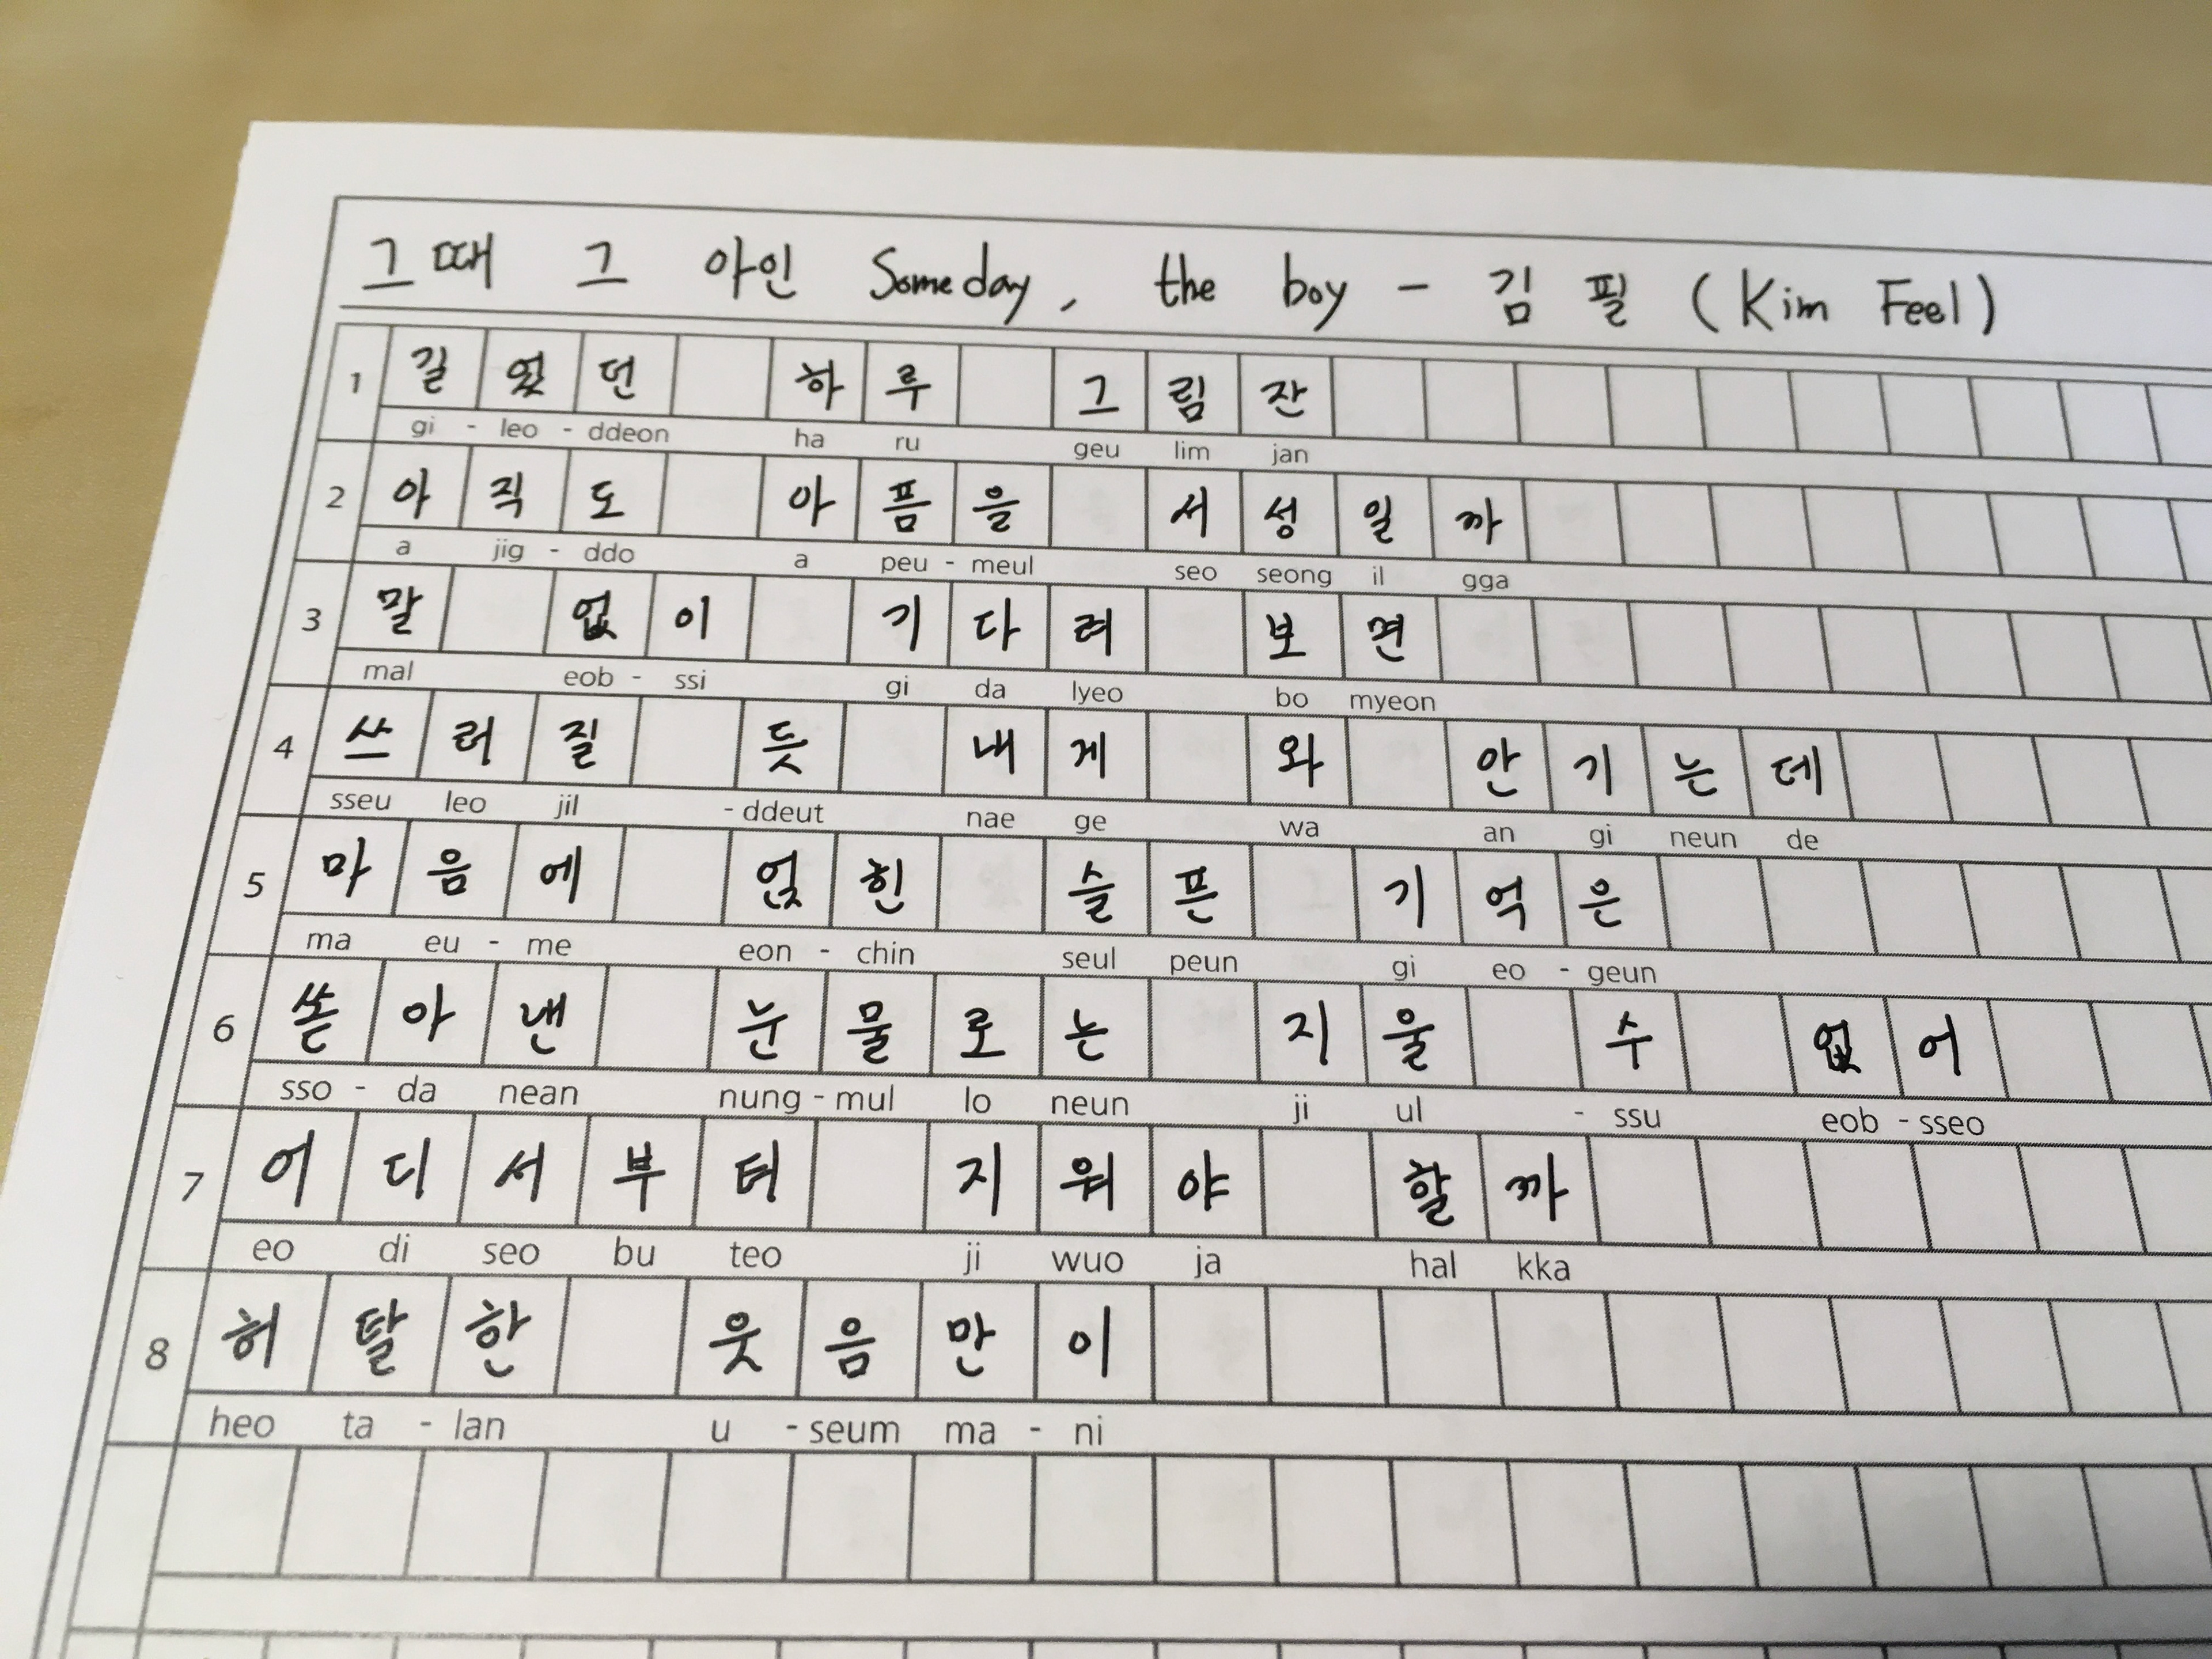 그때 그 아인 Someday, the boy - 김필 (Kim Feel)
1 길었던 하루 그림잔
gi - leo - ddeon ha ru geu lim jan
2 아직도 아픔을 서성일까
a jig - ddo a peu - meul seo seong il gga
3 말 없이 기다려 보면
mal eob - ssi gi da lyeo bo myeon
4 쓰러질 듯 내게 와 안기는데
sseu leo jil - ddeut nae ge wa an gi neun de
5 마음에 얹힌 슬픈 기억은
ma eu - me eon - chin seul peun gi eo - geun
6 쏟아낸 눈물로는 지울 수 없어
sso - da nean nung - mul lo neun ji ul - ssu eob - sseo
7 어디서부터 지워야 할까
eo di seo bu teo ji wuo ja hal kka
8 허탈한 웃음만이
heo ta - lan u - seum ma - ni